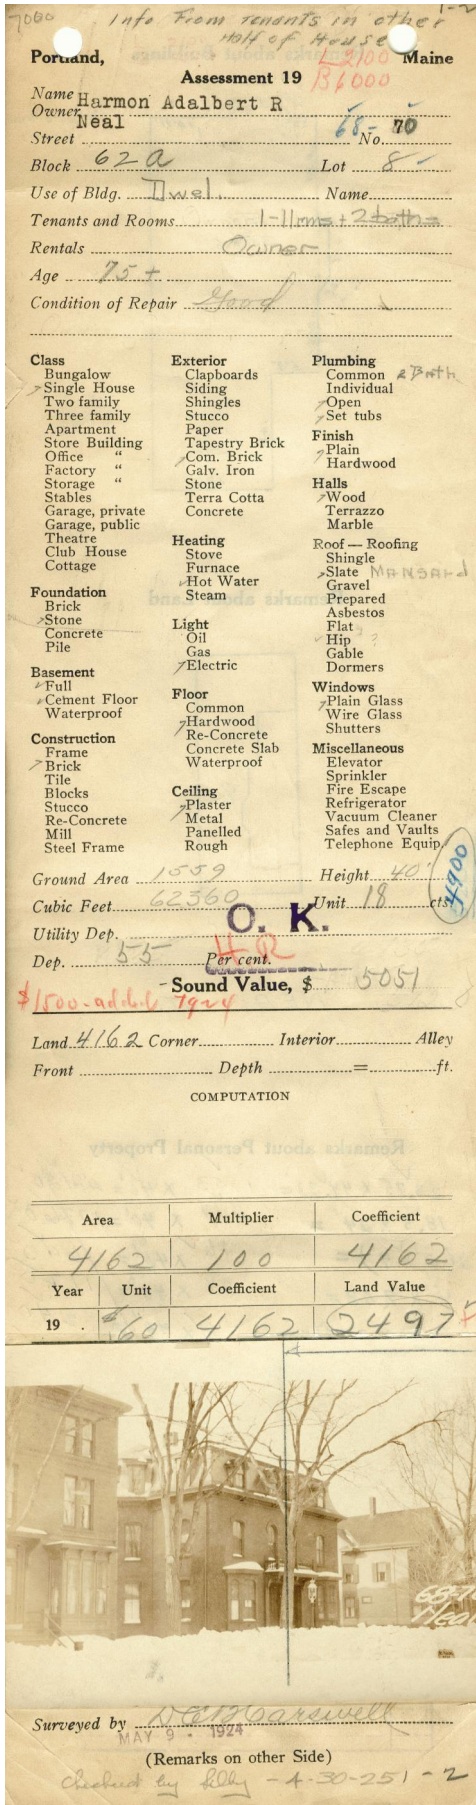 7000
1-2
Info From Tenants in other
Half of House
L 2100
Portland, Maine
B 6000
Assessment 19
Name
Owner Harmon Adalbert R
Neal
Street 68- No. 70
Block 62a Lot 8
Use of Bldg. Dwel. Name
Tenants and Rooms 1-11rms + 2 baths
Rentals Owner
Age 75 +
Condition of Repair Good
Class
Bungalow
Single House
Two family
Three family
Apartment
Store Building
Office "
Factory "
Storage "
Stables
Garage, private
Garage, public
Theatre
Club House
Cottage
Foundation
Brick
Stone
Concrete
Pile
Basement
Full
Cement Floor
Waterproof
Construction
Frame
Brick
Tile
Blocks
Stucco
Re-Concrete
Mill
Steel Frame
Exterior
Clapboards
Siding
Shingles
Stucco
Paper
Tapestry Brick
Com. Brick
Galv. Iron
Stone
Terra Cotta
Concrete
Heating
Stove
Furnace
Hot Water
Steam
Light
Oil
Gas
Electric
Floor
Common
Hardwood
Re-Concrete
Concrete Slab
Waterproof
Ceiling
Plaster
Metal
Panelled
Rough
Plumbing
Common 2 Bath
Individual
Open
Set tubs
Finish
Plain
Hardwood
Halls
Wood
Terrazzo
Marble
Roof — Roofing
Shingle
Slate Mansard
Gravel
Prepared
Asbestos
Flat
Hip ?
Gable
Dormers
Windows
Plain Glass
Wire Glass
Shutters
Miscellaneous
Elevator
Sprinkler
Fire Escape
Refrigerator
Vacuum Cleaner
Safes and Vaults
Telephone Equip.
Ground Area 1559 Height 40'
4900
Cubic Feet 62360 Unit 18 cts.
O. K.
Utility Dep.
HR
Dep. 55 Per cent.
Sound Value, $ 5051
$1500 - added 1924
Land 4162 Corner Interior Alley
Front Depth = ft.
COMPUTATION
Area Multiplier Coefficient
4162 100 4162
Year Unit Coefficient Land Value
19 . $.60 4162 2497
68-70
Neal
Surveyed by
MAY 9 - 1924
(Remarks on other Side)
Checked by - 4-30-25 1-2